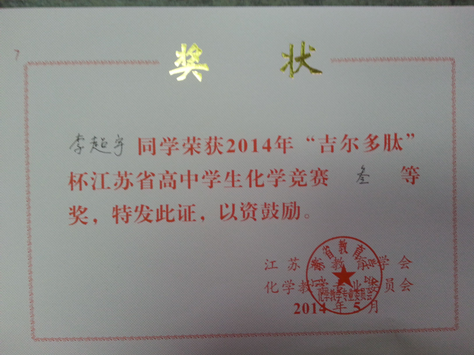 奖 状
李超宇 同学荣获2014年“吉尔多肽”
杯江苏省高中学生化学竞赛 叁 等
奖，特发此证，以资鼓励。
江苏省教育学会
化学教学专业委员会
2014 年 5 月